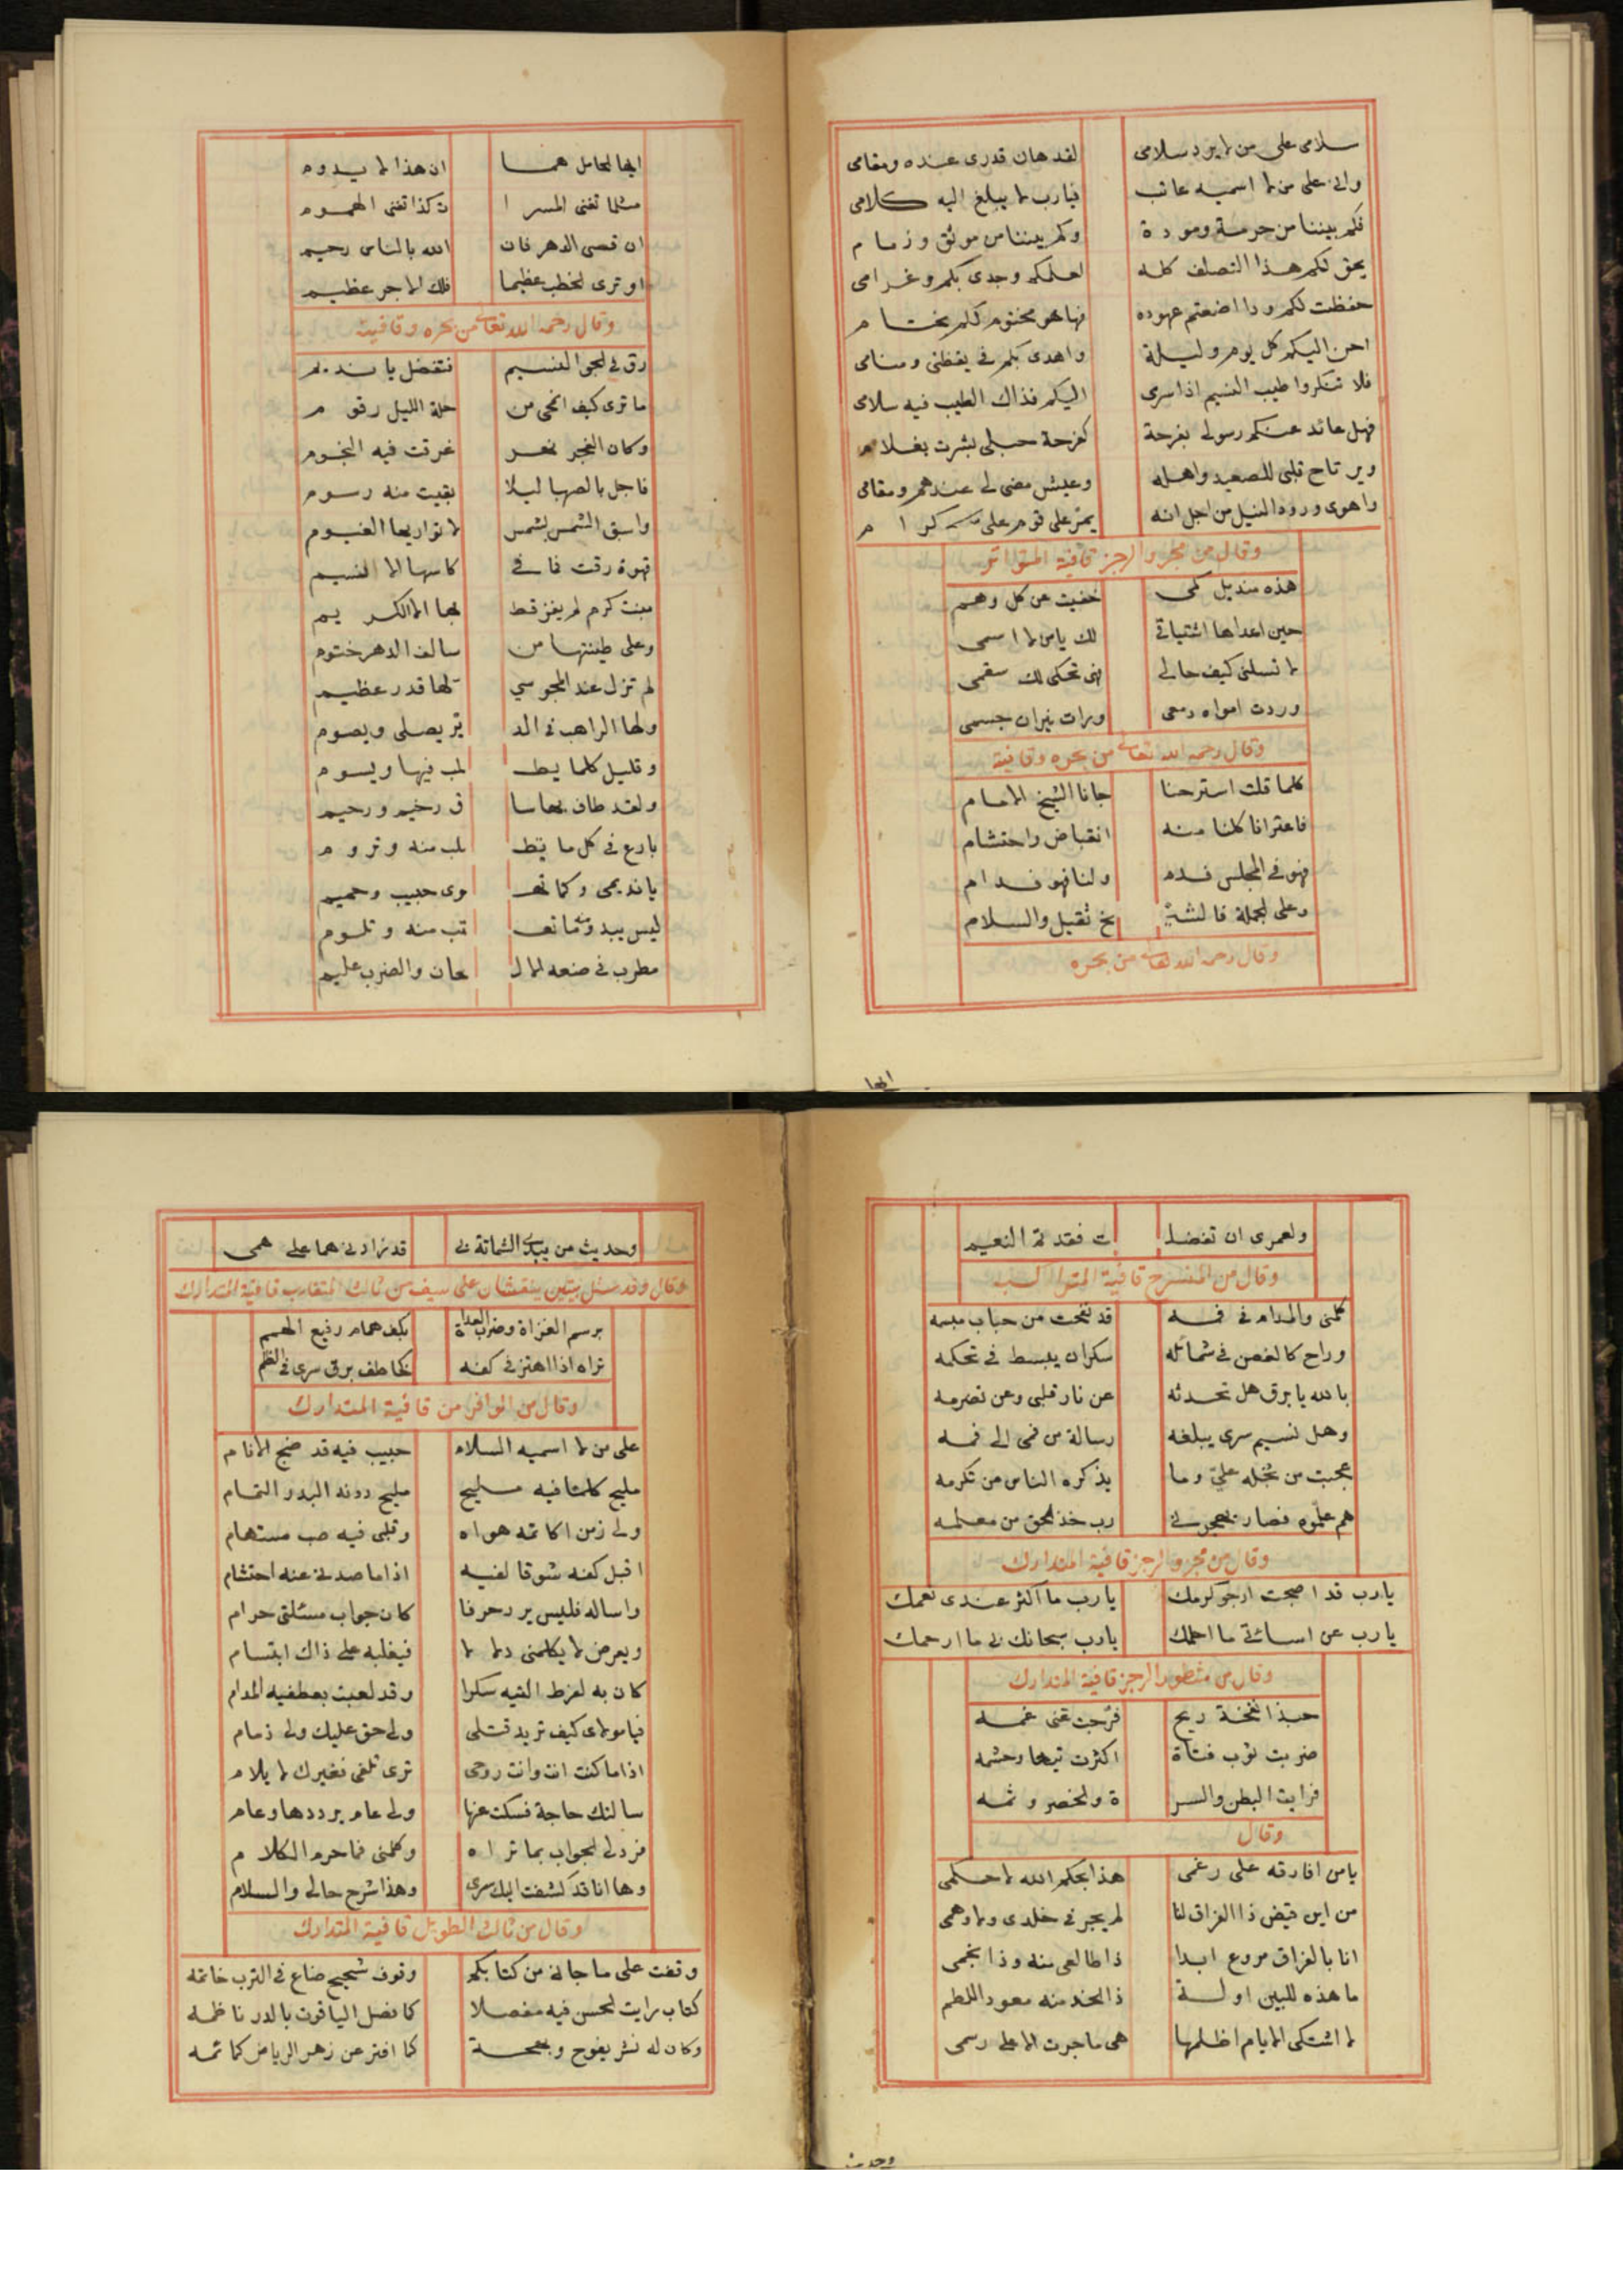 سلامى على من لا يرد سلامى لقد هان قدرى عنده ومقامى
وانى على من لا اسميه عاتب فيارب لا يبلغ اليه كلامى
فكم بيننا من حرمة ومودة وكم بيننا من موثق وزمام
يحق لكم هذا التصلف كله لعلمكم وجدى بكم وغرامى
حفظت لكم ودا اضعتم عهوده فها هو مختوم لكم بختام
احن اليكم كل يوم وليلة واهدى بكم فى يقظتى ومنامى
فلا تنكروا طيب النسيم اذا سرى اليكم فذاك الطيب فيه سلامى
فهل عائد عنكم رسولى بفرحة كفرحة حبلى بشرت بغلام
ويرتاح قلبى للصعيد واهله وعيش مضى لى عندهم ومقامى
واهوى ورود النيل من اجل انه يمر على قوم على كرام
وقال من مجزو الرجز قافية المتواتر
هذه منديل كمى خفيت عن كل وهم
حين اهداها اشتياقى لك يا من لا اسمى
لا تسلنى كيف حالى فهى تحكى لك سقمى
وردت امواه دمعى ورات نيران جسمى
وقال رحمه الله تعالى من بحره وقافيته
كلما قلت استرحنا جانا الشيخ الامام
فاعترانا كلنا منه انقباض واحتشام
فهو فى المجلس فدم ولنا فهو فدام
وعلى الجملة فالشيـ ـخ ثقيل والسلام
وقال رحمه الله تعالى من بحره
ايها
ايها الحامل هما ان هذا لا يدوم
مثلما تفنى المسرا ت كذا تفنى الهموم
ان قسى الدهر فان الله بالناس رحيم
او ترى الخطب عظيما فلك الاجر عظيم
وقال رحمه الله تعالى من بحره وقافيته
رق فى الجو النسيم فتفضل يا نديم
ما ترى كيف انمحى من حلة الليل رقوم
وكان الفجر نهر غرقت فيه النجوم
فاجل بالصهبا ليلا بقيت منه رسوم
واسبق الشمس بشمس لا تواريها الغيوم
قهوة رقت فما فى كاسها الا النسيم
بنت كرم لم يفز قط بها الا الكريم
وعلى طينتها من سالف الدهر ختوم
لم تزل عند المجوسي لها قدر عظيم
ولها الراهب فى الد ير يصلى ويصوم
وقليل كلما يطـ لب فيها ويسوم
ولقد طاف بها سا ق رخيم ورحيم
بارع فى كل ما يطـ لب منه وتروم
يا نديمى وكما تهـ وى حبيب وحميم
ليس يبدو منه ما تعـ تب منه وتلوم
مطرب فى صنعه الالـ حان والضرب عليم
ولعمرى ان تفضلـ ت فقد تم النعيم
وقال من المنسرح قافية المتراكب
كلمنى والمدام فى فمه قد نفحت من حباب مبسمه
وراح كالغصن فى شمائله سكران يبسط فى تحكمه
بالله يا برق هل تحدثه عن نار قلبى وعن تضرمه
وهل نسيم سرى يبلغه رسالة من فمى الى فمه
عجبت من بخله علىّ وما يذكره الناس من تكرمه
هم علّموه فصار يهجرنى رب خذ الحق من معلمه
وقال من مجزو الرجز قافية المتدارك
يا رب قد اصبحت ارجو كرمك يا رب ما اكثر عندى نعمك
يا رب عن اسائتى ما احلمك يا رب سبحانك لى ما ارحمك
وقال من مشطور الرجز قافية المتدارك
حبذا نفخة ريح فرّجت عنى غمه
ضربت ثوب فتاة اكثرت تيها وحشمه
فرايت البطن والسر ة والخصر وثمه
وقال
يا من افارقه على رغمى هذا بحكم الله لا حكمى
من اين قيض ذا الفراق لنا لم يجر فى خلدى ولا وهمى
انا بالفراق مروع ابدا ذا طالعى منه وذا نجمى
ما هذه للبين اولة ذا الخد منه معود اللطم
لا اشتكى الايام اظلمها هى ما جرت الا على رسمى
وحديث
وحديث من يبدى الشماتة لى قد زادنى هما على همى
وقال وقد سئل بيتين ينقشان على سيف من ثالث المتقارب قافية المتدارك
برسم الغزاة وضرب العداة بكف همام رفيع الهمم
تراه اذا اهتز فى كفه كخاطف برق سرى فى الظلم
وقال من الوافر من قافية المتدارك
على من لا اسميه السلام حبيب فيه قد ضج الانام
مليح كلما فيه مليح مليح دونه البدر التمام
ولى زمن اكاتمه هواه وقلبى فيه صب مستهام
اقبل كفه شوقا لفيه اذا ما صدنى عنه احتشام
واساله فليس يرد حرفا كان جواب مسئلتى حرام
ويعرض لا يكلمنى دلالا فيغلبه على ذاك ابتسام
كان به لفرط التيه سكرا وقد لعبت بعطفيه المدام
فيا مولاى كيف تريد قتلى ولى حق عليك ولى ذمام
اذا ما كنت انت وانت روحى ترى تلفى فغيرك لا يلام
سالتك حاجة فسكت عنها ولى عام يرددها وعام
فرد لى الجواب بما تراه وكلمنى فما حرم الكلام
وها انا قد كشفت اليك سرى وهذا شرح حالى والسلام
وقال من ثالث الطويل قافية المتدارك
وقفت على ما جانى من كتابكم وقوف شحيح ضاع فى الترب خاتمه
كتاب رايت الحسن فيه مفصلا كما فصل الياقوت بالدر ناظمه
وكان له نشر يفوح وبهجة كما افتر عن زهر الرياض كمائمه